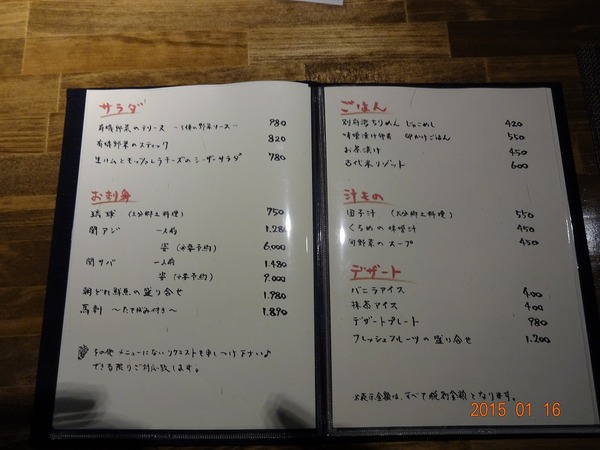 サラダ
有機野菜のテリーヌ 〜5種の野菜ソース〜 980
有機野菜のスティック 820
生ハムともっつぁれらチーズのシーザーサラダ 780
お刺身
琉球 (大分郷土料理) 750
関アジ 一人前 1.280
姿 (※要予約) 6.000
関サバ 一人前 1.480
姿 (※要予約) 9.000
朝どれ鮮魚の盛り合せ 1.980
馬刺 〜たて
がみ付き〜 1.890
その他 メニューにないリクエストを申しつけ下さい♪
できる限りご対応致します。
ごはん
別府湾ちりめん じゃこめし 420
味噌漬け卵黄 卵かけごはん 550
お茶漬け 450
古代米リゾット 600
汁もの
団子汁 (大分郷土料理) 550
くろめの味噌汁 450
旬野菜のスープ 450
デザート
バニラアイス 400
抹茶アイス 400
デザートプレート 980
フレッシュフルーツの盛り合せ 1.200
※表示金額は、すべて税別金額となります。
2015 01 16